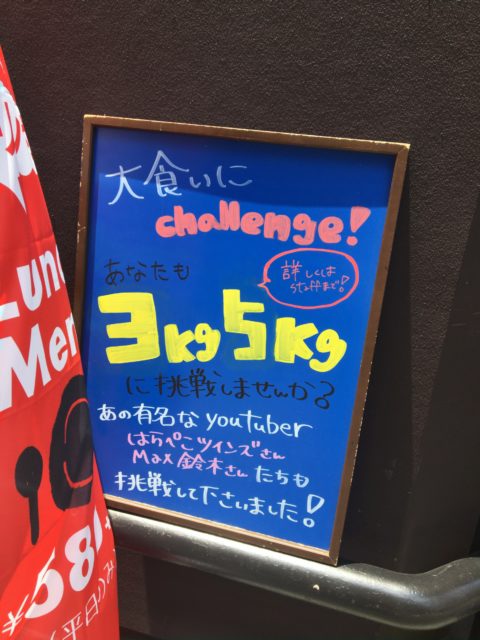 大食いに
challenge!
あなたも
詳しくは
staffまで!
3kg 5kg
に挑戦しませんか?
あの有名なyoutuber
はらぺこツインズさん
Max鈴木さんたちも
挑戦して下さいました!
Lun
Men
¥58
(平日)